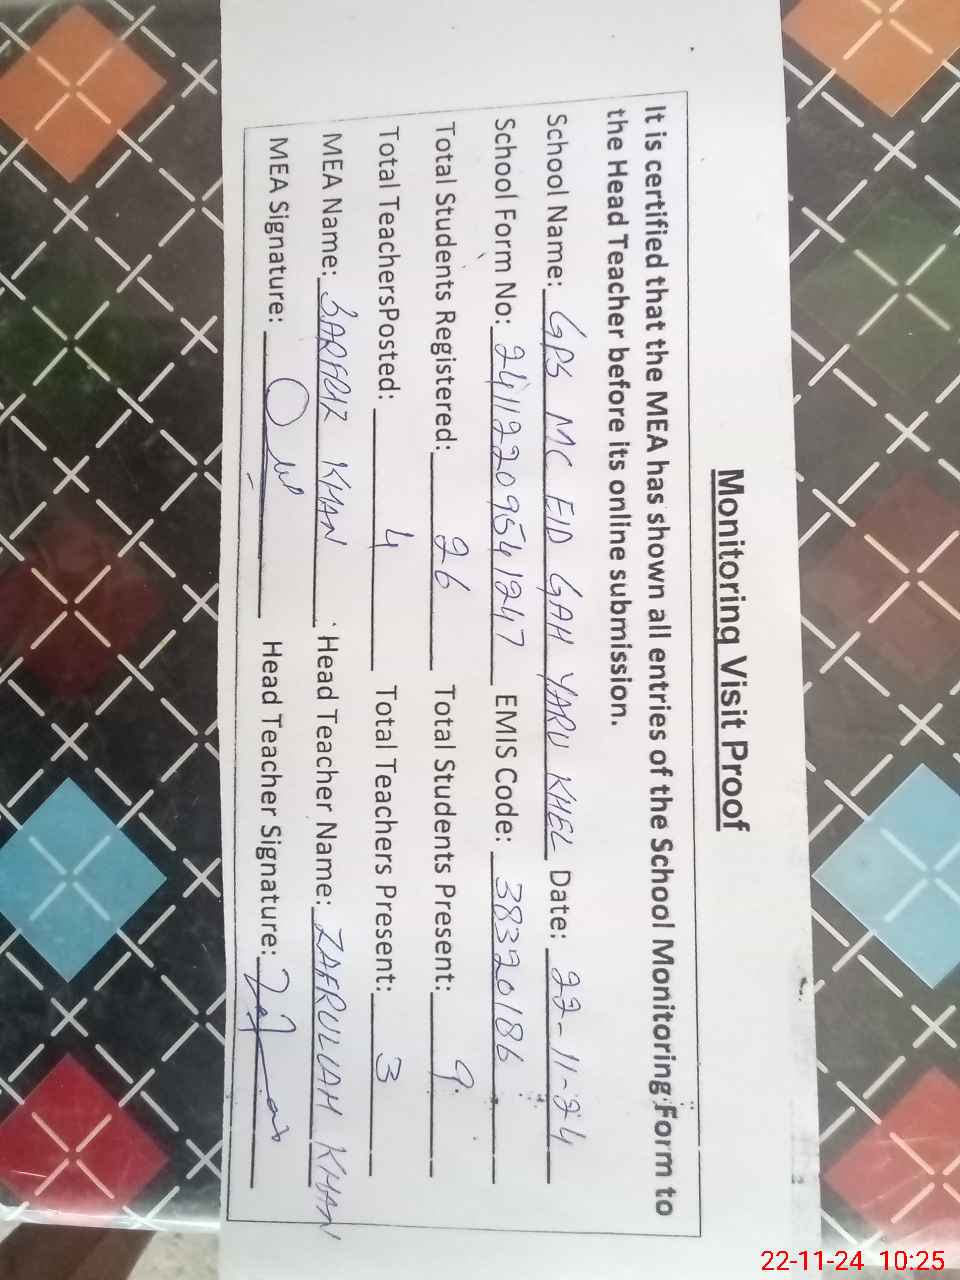 Monitoring Visit Proof
It is certified that the MEA has shown all entries of the School Monitoring Form to
the Head Teacher before its online submission.
School Name: GPS MC EID GAH YARU KHEL Date: 22-11-24
School Form No: 24112209541247 EMIS Code: 38320186
Total Students Registered: 26 Total Students Present: 9
Total TeachersPosted: 4 Total Teachers Present: 3
MEA Name: SARFRAZ KHAN Head Teacher Name: ZAFRULLAH KHAN
MEA Signature: Head Teacher Signature:
22-11-24 10:25